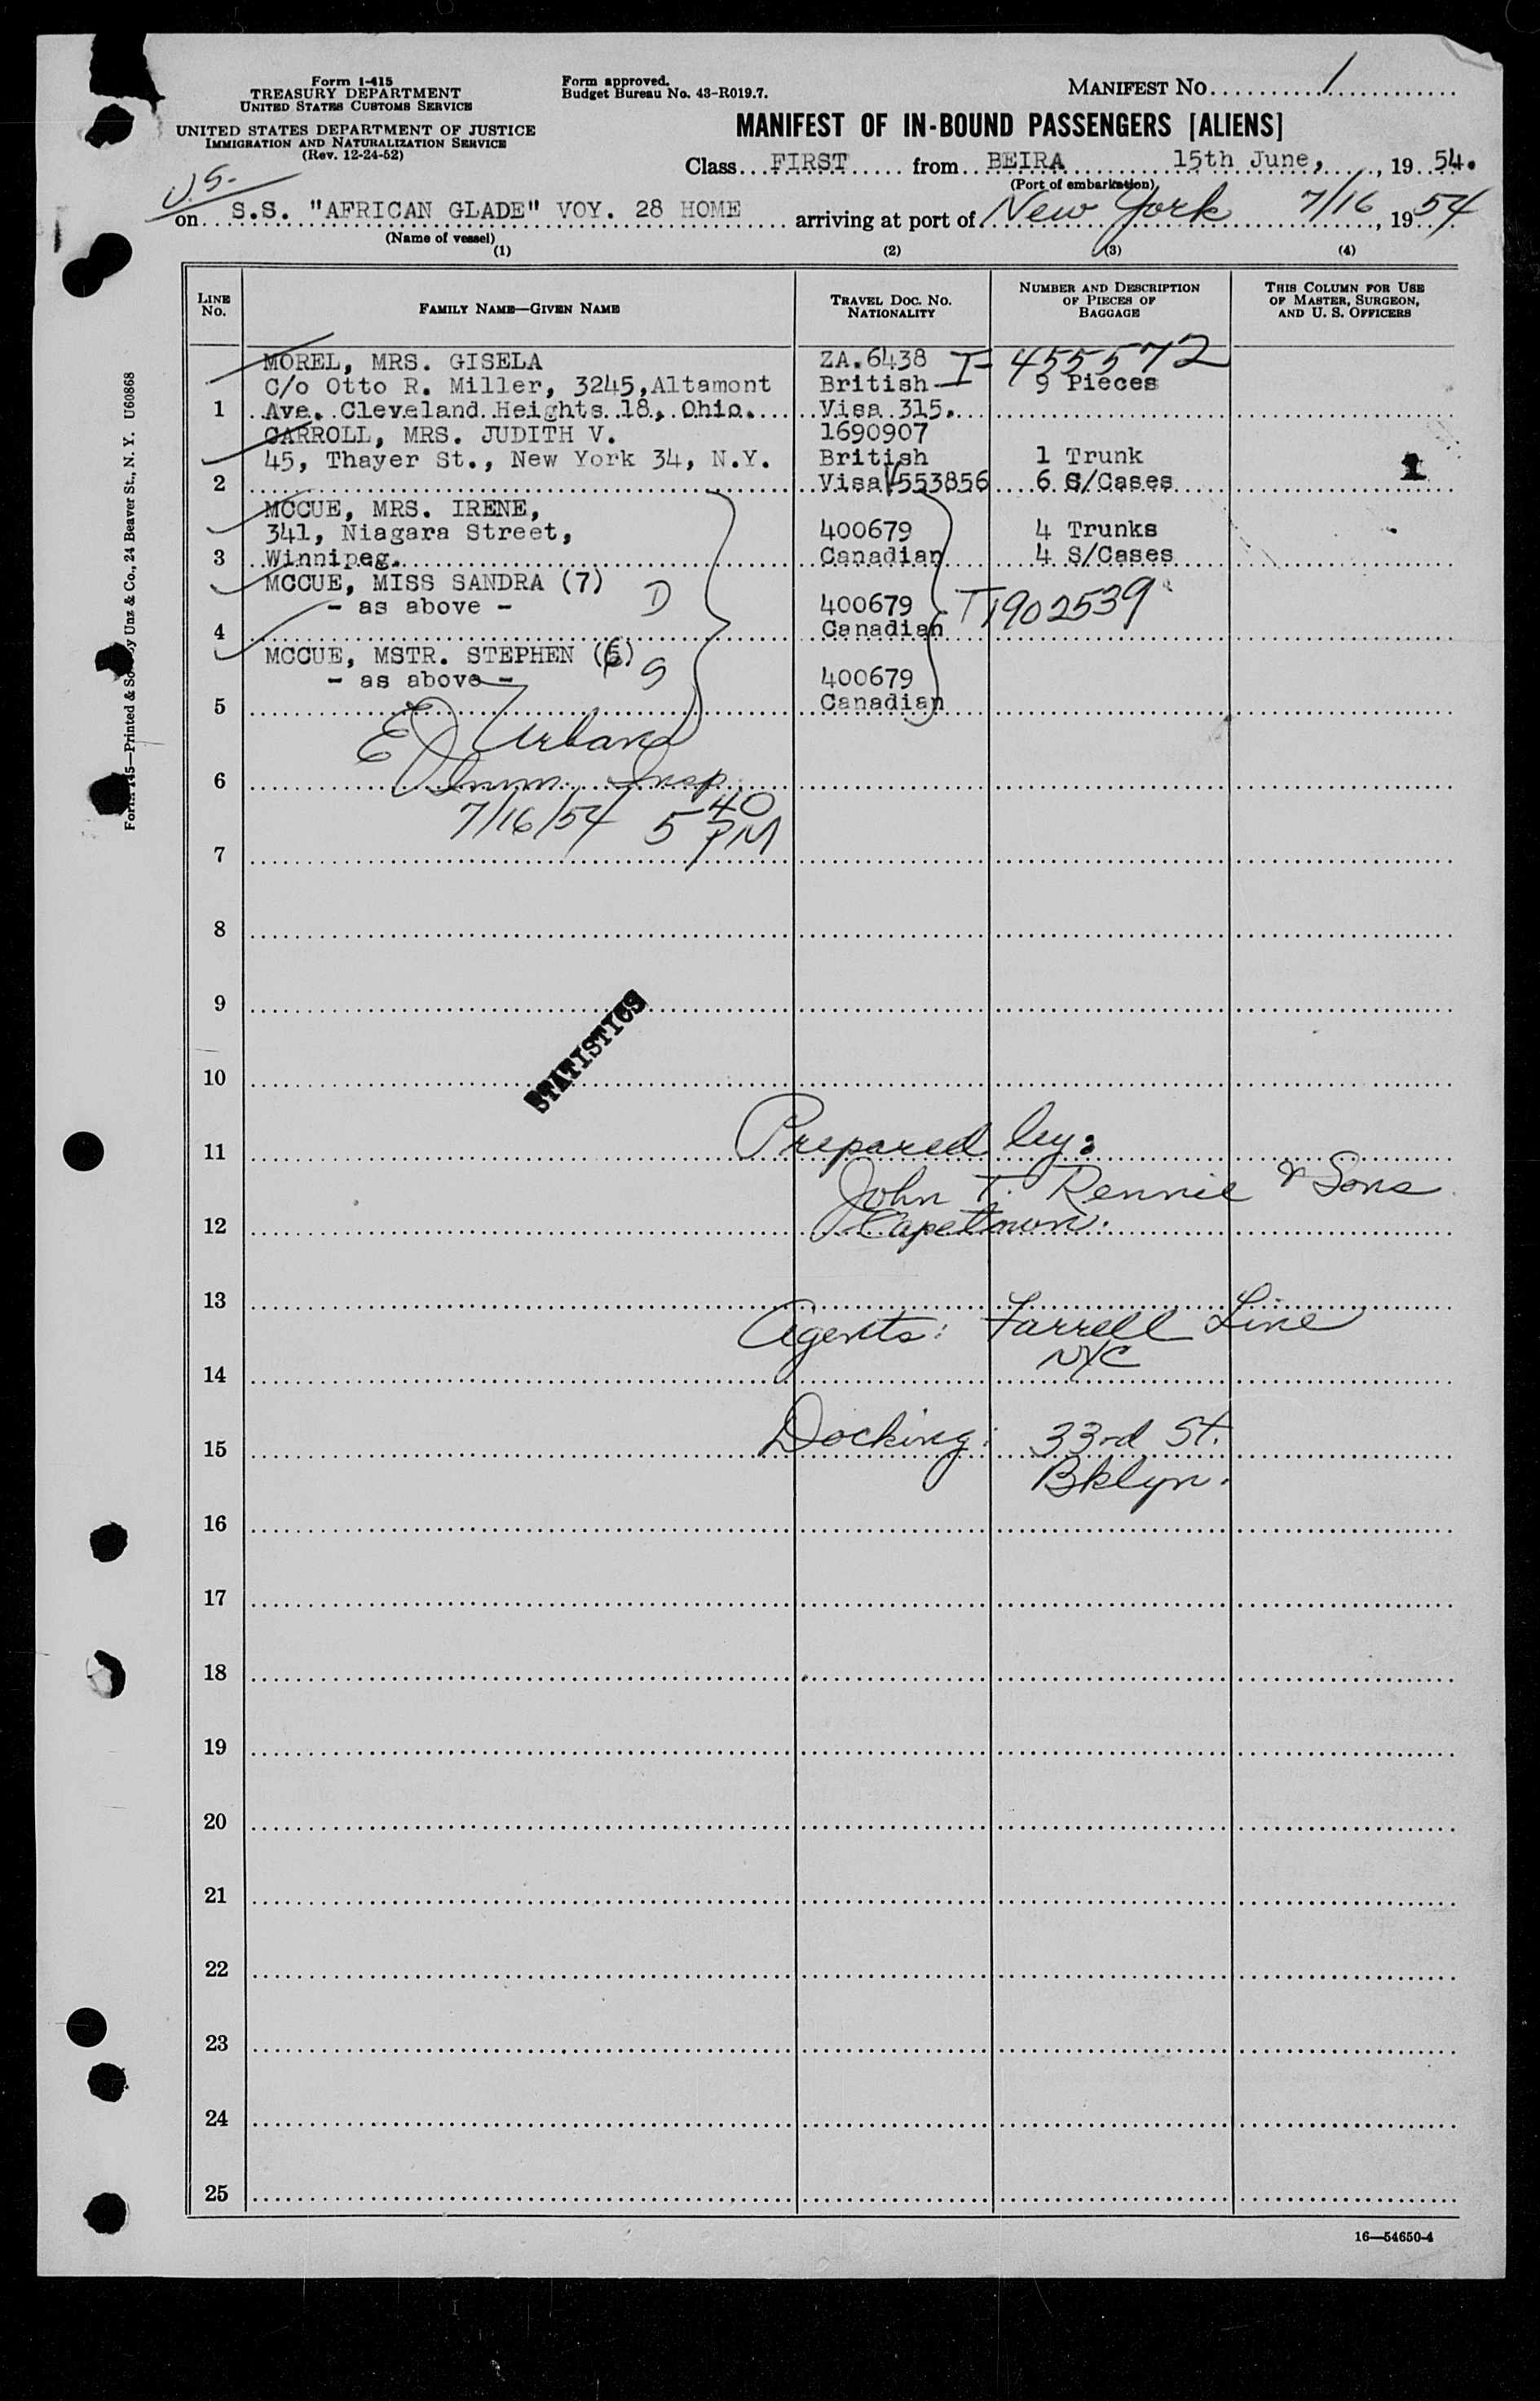 Form I-415
TREASURY DEPARTMENT
UNITED STATES CUSTOMS SERVICE
UNITED STATES DEPARTMENT OF JUSTICE
IMMIGRATION AND NATURALIZATION SERVICE
(Rev. 12-24-52)
Form approved.
Budget Bureau No. 43-R019.7.
MANIFEST NO. 1
MANIFEST OF IN-BOUND PASSENGERS [ALIENS]
Class FIRST from BEIRA 15th June, , 19 54.
(Port of embarkation)
U.S.
on S.S. "AFRICAN GLADE" VOY. 28 HOME arriving at port of New York 7/16, 19 54
(Name of vessel)
(1) (2) (3) (4)
LINE NO.
FAMILY NAME—GIVEN NAME
TRAVEL DOC. NO. NATIONALITY
NUMBER AND DESCRIPTION OF PIECES OF BAGGAGE
THIS COLUMN FOR USE OF MASTER, SURGEON, AND U. S. OFFICERS
MOREL, MRS. GISELA ZA.6438 I-455572
C/o Otto R. Miller, 3245,Altamont British 9 Pieces
1 Ave. Cleveland Heights 18, Ohio. Visa 315.
CARROLL, MRS. JUDITH V. 1690907
45, Thayer St., New York 34, N.Y. British 1 Trunk
2 Visa V553856 6 S/Cases 1
MCCUE, MRS. IRENE,
341, Niagara Street, 400679 4 Trunks
3 Winnipeg. Canadian 4 S/Cases
MCCUE, MISS SANDRA (7) D
- as above - 400679 T1902539
4 Canadian
MCCUE, MSTR. STEPHEN (6) S
- as above - 400679
5 Canadian
E J Urband
6 Imm. Insp.
7/16/54 5 40 PM
7
8
9
STATISTICS
10
11 Prepared by:
John T. Rennie & Sons
12 Capetown.
13
Agents: Farrell Line
14 NYC
15 Docking: 33rd St.
Bklyn.
16
17
18
19
20
21
22
23
24
25
16—54650-4
Form 145—Printed & Sold by Unz & Co., 24 Beaver St., N. Y. U60868